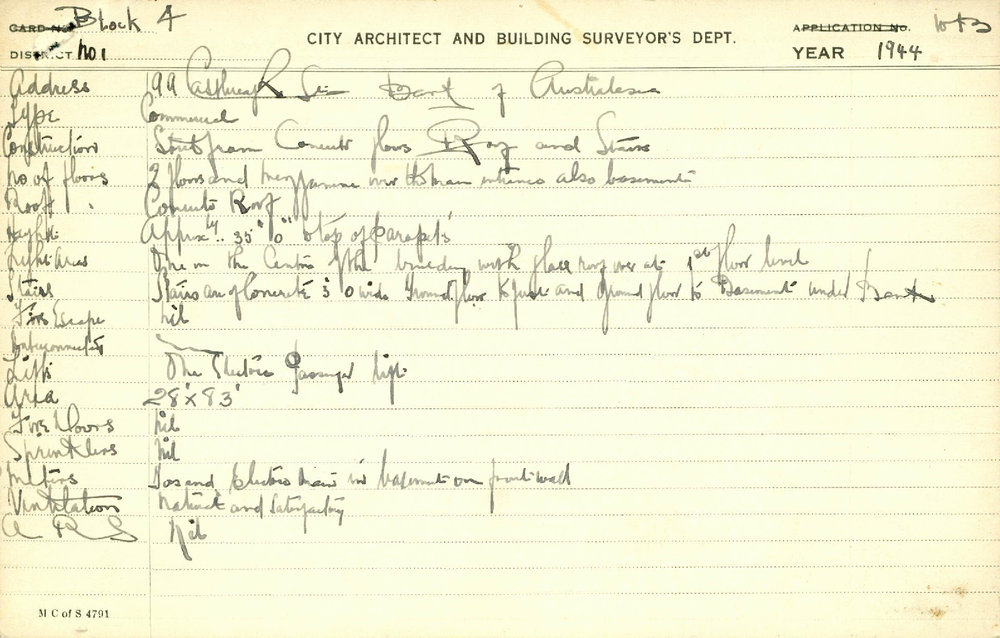 CARD No. Block 4
CITY ARCHITECT AND BUILDING SURVEYOR'S DEPT.
APPLICATION No.
DISTRICT No 1
YEAR 1944
Address 199 Castlereagh St Bank of Australasia
Type Commercial
Construction Concrete floors Roof and Stairs
No of floors 2 floors and mezzanine over the main entrance also basement
Roof Concrete Roof
Height Approx 35' 0" to top of parapets
Light Areas One in the Centre of the building with glass roof over at 1st floor level
Stairs Stairs are of Concrete 3' 0 wide Ground floor to and ground floor to Basement under Bank
Fire Escape Nil
Lifts One Electric Passenger Lift
Area 28' x 83'
Fire Doors Nil
Sprinklers Nil
Meters Gas and Electric in basement on front wall
Ventilation Natural and Satisfactory
A R S Nil
M C of S 4791